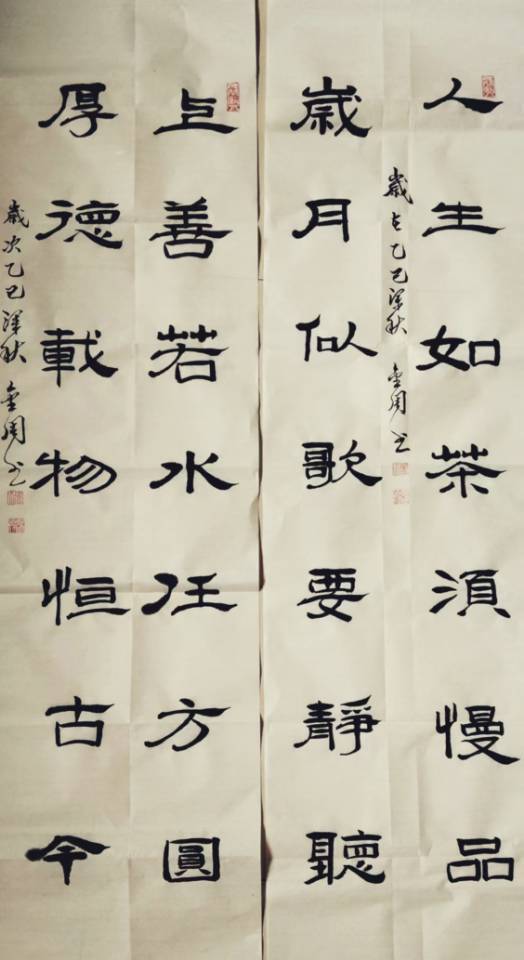 人生如茶須慢品
歲月似歌要靜聽
歲在乙巳深秋 金周书
上善若水任方圓
厚德載物恒古今
歲次乙巳深秋 金周书